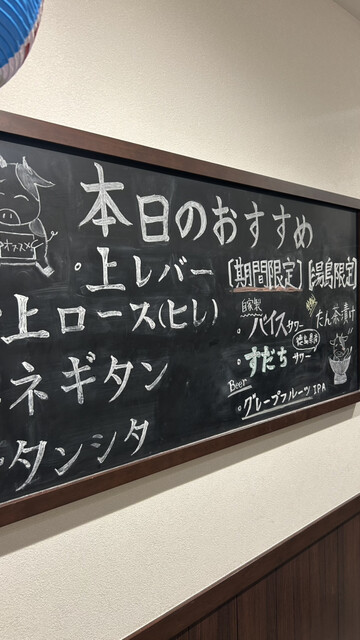 オススメ
本日のおすすめ
・上レバー
・上ロース(ヒレ)
・ネギタン
・タンシタ
[期間限定]
自家製
・バイスサワー
・すだちサワー
徳島県産
Beer
・グレープフルーツ IPA
[湯島限定]
たん茶漬け